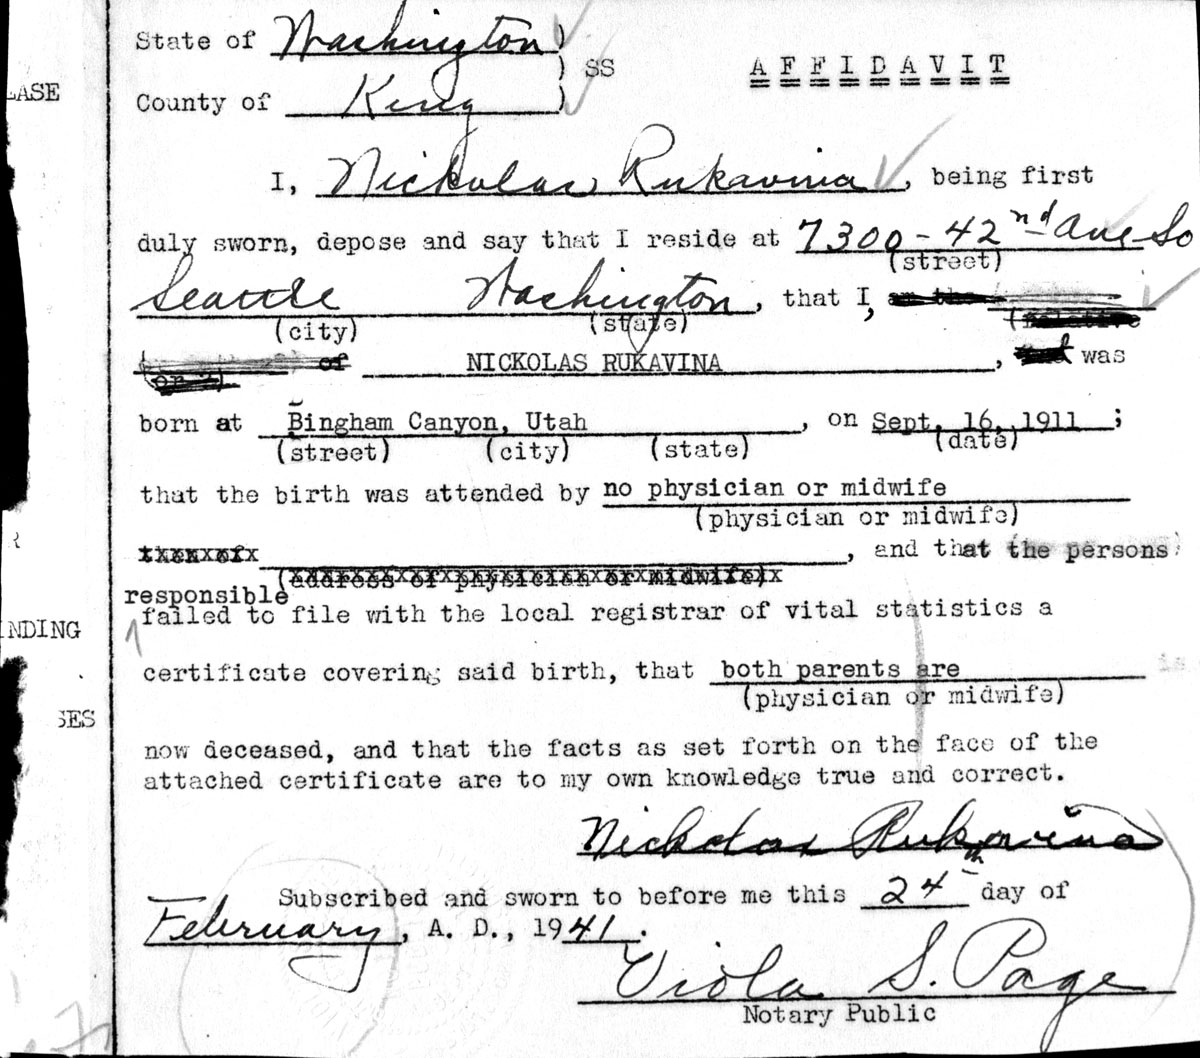 State of Washington )
) SS
AFFIDAVIT
County of King )
LEASE
I, Nickolas Rukavina, being first
duly sworn, depose and say that I reside at 7300-42nd Ave So
(street)
Seattle Washington, that I, am the
(city) (state) (relative
of NICKOLAS RUKAVINA, and was
born at Bingham Canyon, Utah, on Sept. 16, 1911;
(street) (city) (state) (date)
that the birth was attended by no physician or midwife
(physician or midwife)
, and that the persons
(address of physician or midwife)
responsible
failed to file with the local registrar of vital statistics a
NDING
certificate covering said birth, that both parents are is
(physician or midwife)
SES
now deceased, and that the facts as set forth on the face of the
attached certificate are to my own knowledge true and correct.
Nickolas Rukavina
Subscribed and sworn to before me this 24th day of
February, A. D., 1941.
Viola S. Page
Notary Public